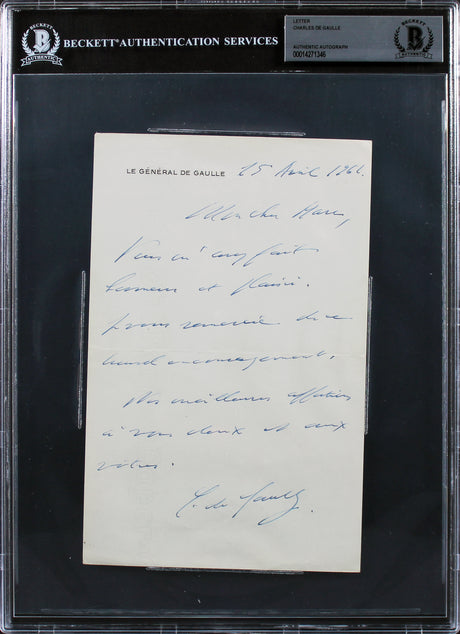 BECKETT
B
AUTHENTIC
BECKETT® AUTHENTICATION SERVICES
LETTER
CHARLES DE GAULLE
AUTHENTIC AUTOGRAPH
00014271346
BECKETT
B
AUTHENTIC
LE GÉNÉRAL DE GAULLE 15 Avril 1961.
Mon cher Marc,
Vous m'avez fait
honneur et plaisir.
Je vous remercie de ce
encouragement.
Nos meilleures affections
à vous deux et aux
vôtres.
C. de Gaulle.